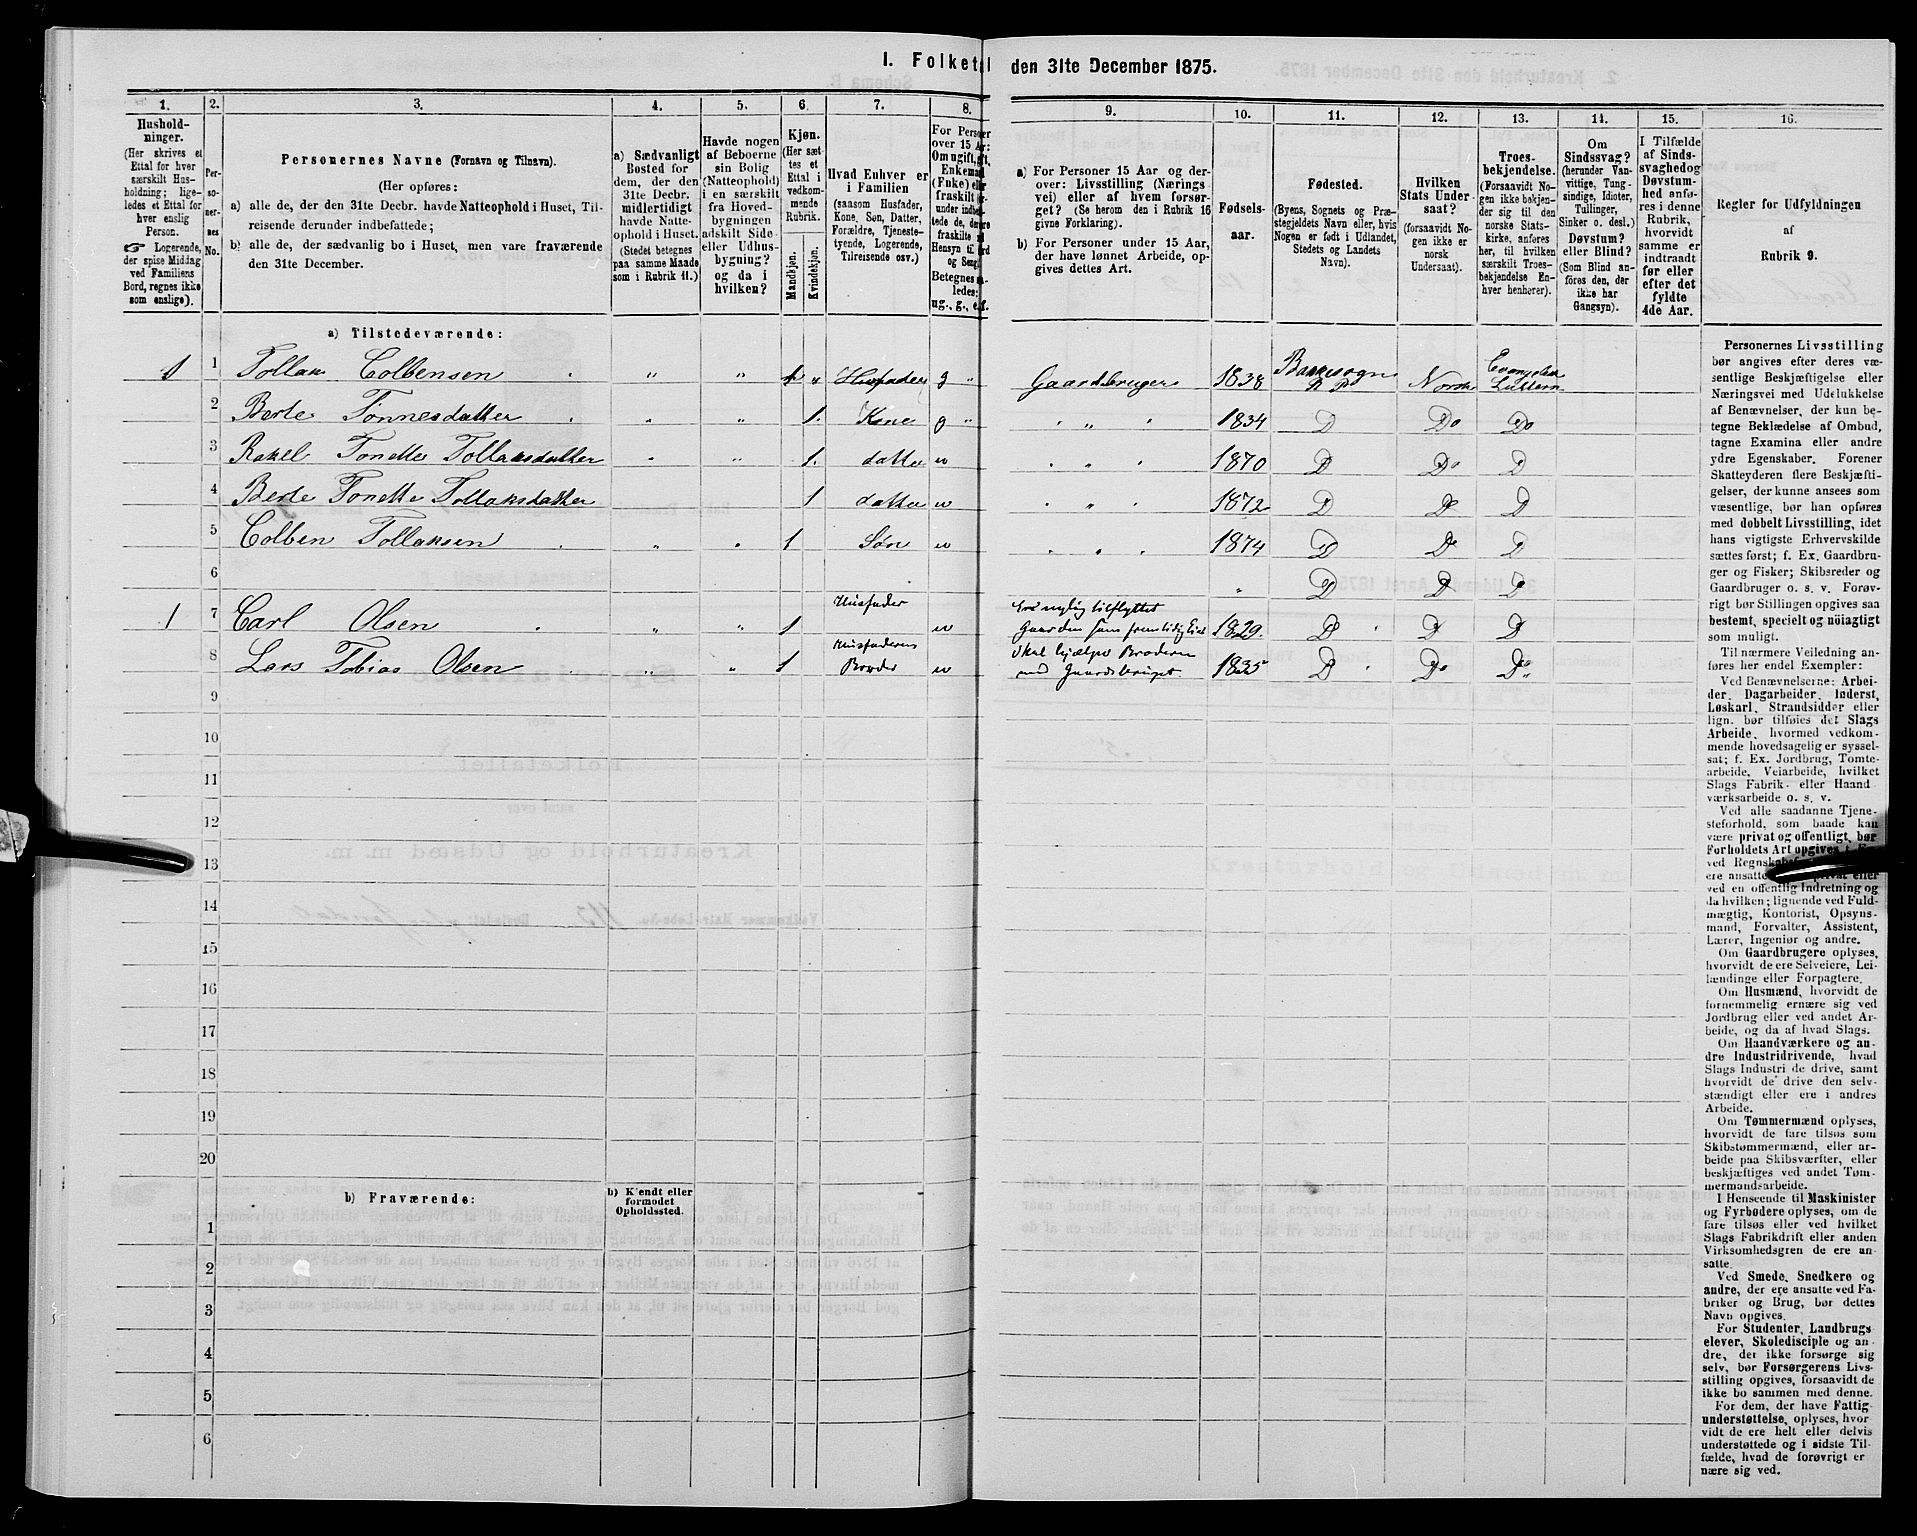 I. Folketal den 31te December 1875.
1. 2. 3. 4. 5. 6. 7. 8. 9. 10. 11. 12. 13. 14. 15. 16.
Hushold-
ninger.
(Her skrives et
Ettal for hver
særskilt Hus-
holdning; lige-
ledes et Ettal for
hver enslig
Person.
☞ Logerende,
der spise Middag
ved Familiens
Bord, regnes ikke
som enslige).
Per-
so-
ner-
nes
No.
Personernes Navne (Fornavn og Tilnavn).
(Her opføres:
a) alle de, der den 31te Decbr. havde Natteophold i Huset, Til-
reisende derunder indbefattede;
b) alle de, der sædvanlig bo i Huset, men vare fraværende
den 31te December.
a) Sædvanligt
Bosted for
dem, der den
31te Decbr.
midlertidigt
havde Natte-
ophold i Huset.
(Stedet betegnes
paa samme Maade
som i Rubrik 11.)
Havde nogen
af Beboerne
sin Bolig
(Natteophold)
i en særskilt
fra Hoved-
bygningen
adskilt Side-
eller Udhus-
bygning?
og da i
hvilken?
Kjøn.
(Her sæt-
tes et
Ettal i
vedkom-
mende
Rubrik.
Mandkjøn.
Kvindekjøn.
Hvad Enhver er
i Familien
(saasom Husfader,
Kone, Søn, Datter,
Forældre, Tjeneste-
tyende, Logerende,
Tilreisende osv.)
For Personer
over 15 Aar:
Om ugift, gift,
Enkemand
(Enke) eller
fraskilt
Betegnes
ledes:
ug., g., e., f.
a) For Personer 15 Aar og der-
over: Livsstilling (Nærings
vei) eller af hvem forsør-
get? (Se herom den i Rubrik 16
givne Forklaring).
b) For Personer under 15 Aar,
der have lønnet Arbeide, op-
gives dettes Art.
Fødsels-
aar.
Fødested.
(Byens, Sognets og Præ-
stegjeldets Navn eller, hvis
Nogen er født i Udlandet,
Stedets og Landets
Navn).
Hvilken
Stats Under-
saat?
(forsaavidt No-
gen ikke er
norsk
Undersaat).
Troes-
bekjendelse.
(Forsaavidt No-
gen ikke bekjen-
der sig til den
norske Stats-
kirke, anføres
her, til hvilken
særskilt Troes-
bekjendelse En-
hver henhører).
Om
Sindssvag?
(herunder Van-
vittige, Tung-
sindige, Idioter,
Tullinger,
Sinker o. desl.)
Døvstum?
eller Blind?
(Som Blind an-
føres den, der
ikke har
Gangsyn).
I Tilfælde
af Sinds-
svaghed og
Døvstum-
hed anfø-
res i denne
Rubrik,
hvorvidt
samme er
indtraadt
før eller
efter det
fyldte
4de Aar.
Regler for Udfyldningen
af
Rubrik 9.
a) Tilstedeværende:
1 1 Tollak Colbensen " " 1 " Husfader g " Gaardbruger 1838 Bakkesogn Norsk
2 Berte Tønnesdatter " " 1. Kone g " " 1834 D Do Do
3 Rakel Tonette Tollaksdatter " " 1. datter " 1870 D Do D
4 Berte Tonette Tollaksdatter 1 datter " 1872 D D D
5 Colben Tollaksen " " 1 Søn " 1874 D D D
6 " D D D
1 7 Carl Olsen " " 1 Husfader Er nylig tilflyttet
Gaarden som fremtidig 1829. D D D
8 Lars Tobias Olsen " " 1 Husfaderens
Broder Skal hjælpe Broderen
med Gaardsbruget. 1835 D Do Do
9
10
11
12
13
14
15
16
17
18
19
20
b) Fraværende:
b) Kjendt eller
formodet
Opholdssted.
1
2
3
4
5
6
Personernes Livsstilling
bør angives efter deres væ-
sentlige Beskjæftigelse eller
Næringsvei med Udelukkelse
af Benævnelser, der kun be-
tegne Beklædelse af Ombud,
tagne Examina eller andre
ydre Egenskaber. Forener
Skatteyderen flere Beskjæfti-
gelser, der kunne ansees som
væsentlige, bør han opføres
med dobbelt Livsstilling, idet
hans vigtigste Erhvervskilde
sættes først; f. Ex. Gaardbru-
ger og Fisker; Skibsreder og
Gaardbruger o. s. v. Forøv-
rigt bør Stillingen opgives saa
bestemt, specielt og nøiagtigt
som muligt.
Til nærmere Veiledning an-
føres her endel Exempler:
Ved Benævnelserne: Arbei-
der, Dagarbeider, Inderst,
Løskarl, Strandsidder eller
lign. bør tilføies det Slags
Arbeide, hvormed vedkom-
mende hovedsagelig er syssel-
sat; f. Ex. Jordbrug, Tomte-
arbeide, Veiarbeide, hvilket
Slags Fabrik- eller Haand
værksarbeide o. s. v.
Ved alle saadanne Tjene-
steforhold, som baade kan
være privat og offentligt, bør
Forholdets Art opgives
ere ansatte
ved en offentlig Indretning og
da hvilken; lignende ved Fuld-
mægtig, Kontorist, Opsyns-
mand, Forvalter, Assistent,
Lærer, Ingeniør og andre.
Om Gaardbrugere oplyses,
hvorvidt de ere Selveiere, Lei-
lændinge eller Forpagtere.
Om Husmænd, hvorvidt de
fornemmelig ernære sig ved
Jordbrug eller ved andet Ar-
beide, og da af hvad Slags.
Om Haandværkere og an-
dre Industridrivende, hvad
Slags Industri de drive, samt
hvorvidt de drive den selv-
stændigt eller ere i andres
Arbeide.
Om Tømmermænd oplyses,
hvorvidt de fare tilsøs som
Skibstømmermænd, eller ar-
beide paa Skibsværfter, eller
beskjæftiges ved andet Tøm-
mermandsarbeide.
I Henseende til Maskinister
og Fyrbødere oplyses, om de
fare tilsøs eller ved hvilket
Slags Fabrikdrift eller anden
Virksomhedsgren de ere an-
satte.
Ved Smede, Snedkere og
andre, der ere ansatte ved Fa-
briker og Brug, bør dettes
Navn opgives.
For Studenter, Landbrugs-
elever, Skoledisciple og an-
dre, der ikke forsørge sig
selv, bør Forsørgerens Livs-
stilling opgives, forsaavidt de
ikke bo sammen med denne.
For dem, der have Fattig-
understøttelse, oplyses, hvor-
vidt de ere helt eller delvis
understøttede og i sidste Til-
fælde, hvad de forøvrigt er
nære sig ved.